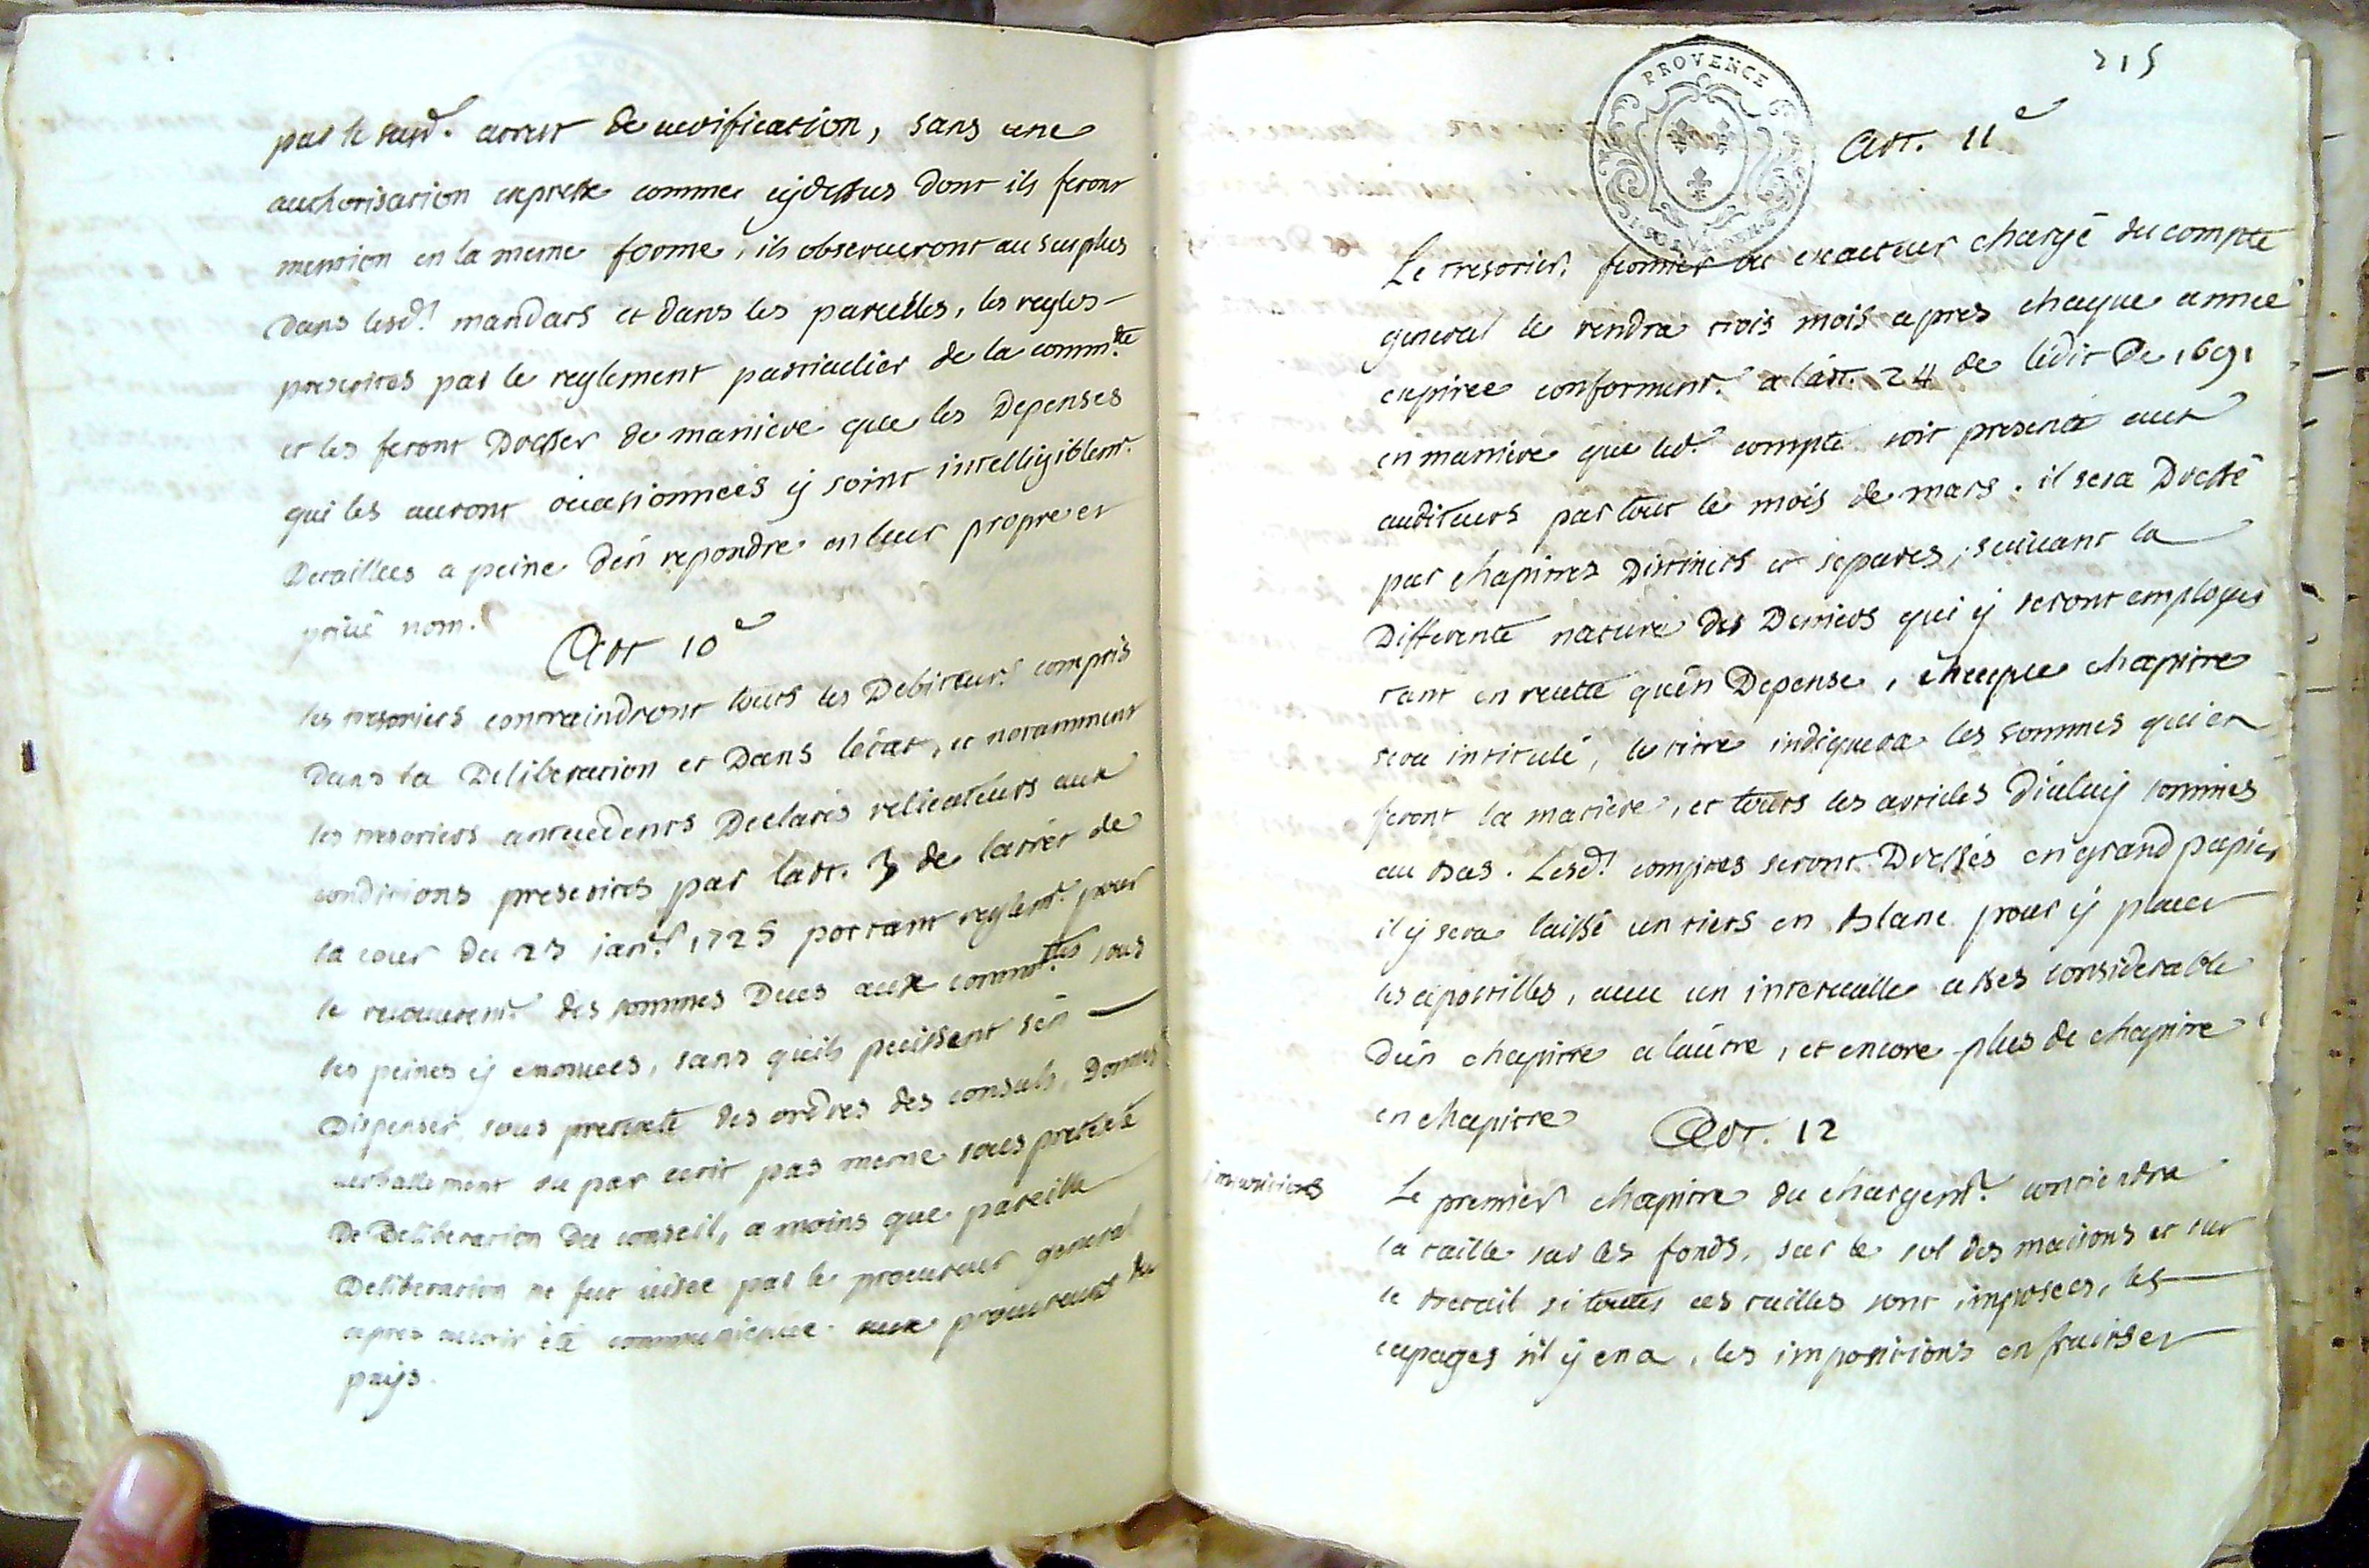 par le susd. arrest de verification, sans une
authorisation expresse comme cydessus dont ils feront
mention en la meme forme, ils observeront au surplus
dans lesd. mandats et dans les parcelles, les regles
prescrites par le reglement particulier de la comm.té
et les feront dresser de maniere que les depenses
qui les auront occasionnées y soint intelligiblemt.
detaillées a peine d'en repondre en leur propre et
privé nom.
Art 10e
les tresoriers contraindront touts les debiteurs compris
dans la deliberation et dans l'état, et notamment
les tresoriers antecedents declarés relicateurs aux
conditions prescrites par l'art. 3 de l'arrêt de
la cour du 23 janr. 1725 portant reglemt. pour
le recouvremt. des sommes dues aux commtés. sous
les peines y enoncées, sans qu'ils puissent s'en
dispenser sous pretexte des ordres des consuls, donnés
verballement ou par ecrit pas meme sous pretexte
de deliberation du conseil, a moins que pareille
deliberation ne fut visée par le procureur general
apres avoir eté communiquée aux procureurs du
pays.
PROVENCE
215
Art. 11e
Le tresorier, fermier ou exacteur chargé du compte
general le rendra trois mois apres chaque année
expirée conformemt. a l'art. 24 de l'edit de 1691
en maniere que led. compte soit presenté aux
auditeurs par tout le mois de mars. il sera dressé
par chapitres distincts et separés, suivant la
differente nature des deniers qui y seront employés
tant en recette qu'en depense, chaque chapitre
sera intitulé, le titre indiquera les sommes qui en
feront la matiere, et touts les articles d'iceluy sommés
au bas. Lesd. comptes seront dressés en grand papier
il y sera laissé un tiers en blanc pour y placer
les apostilles, avec un intervalle assés considerable
d'un chapitre a l'autre, et encore plus de chapitre
en chapitre
Art. 12
impositions
Le premier chapitre du chargemt. contiendra
la taille sur les fonds, sur le sol des maisons et sur
le betail si toutes ces tailles sont imposées, les
capages s'il y en a, les impositions en fruits et